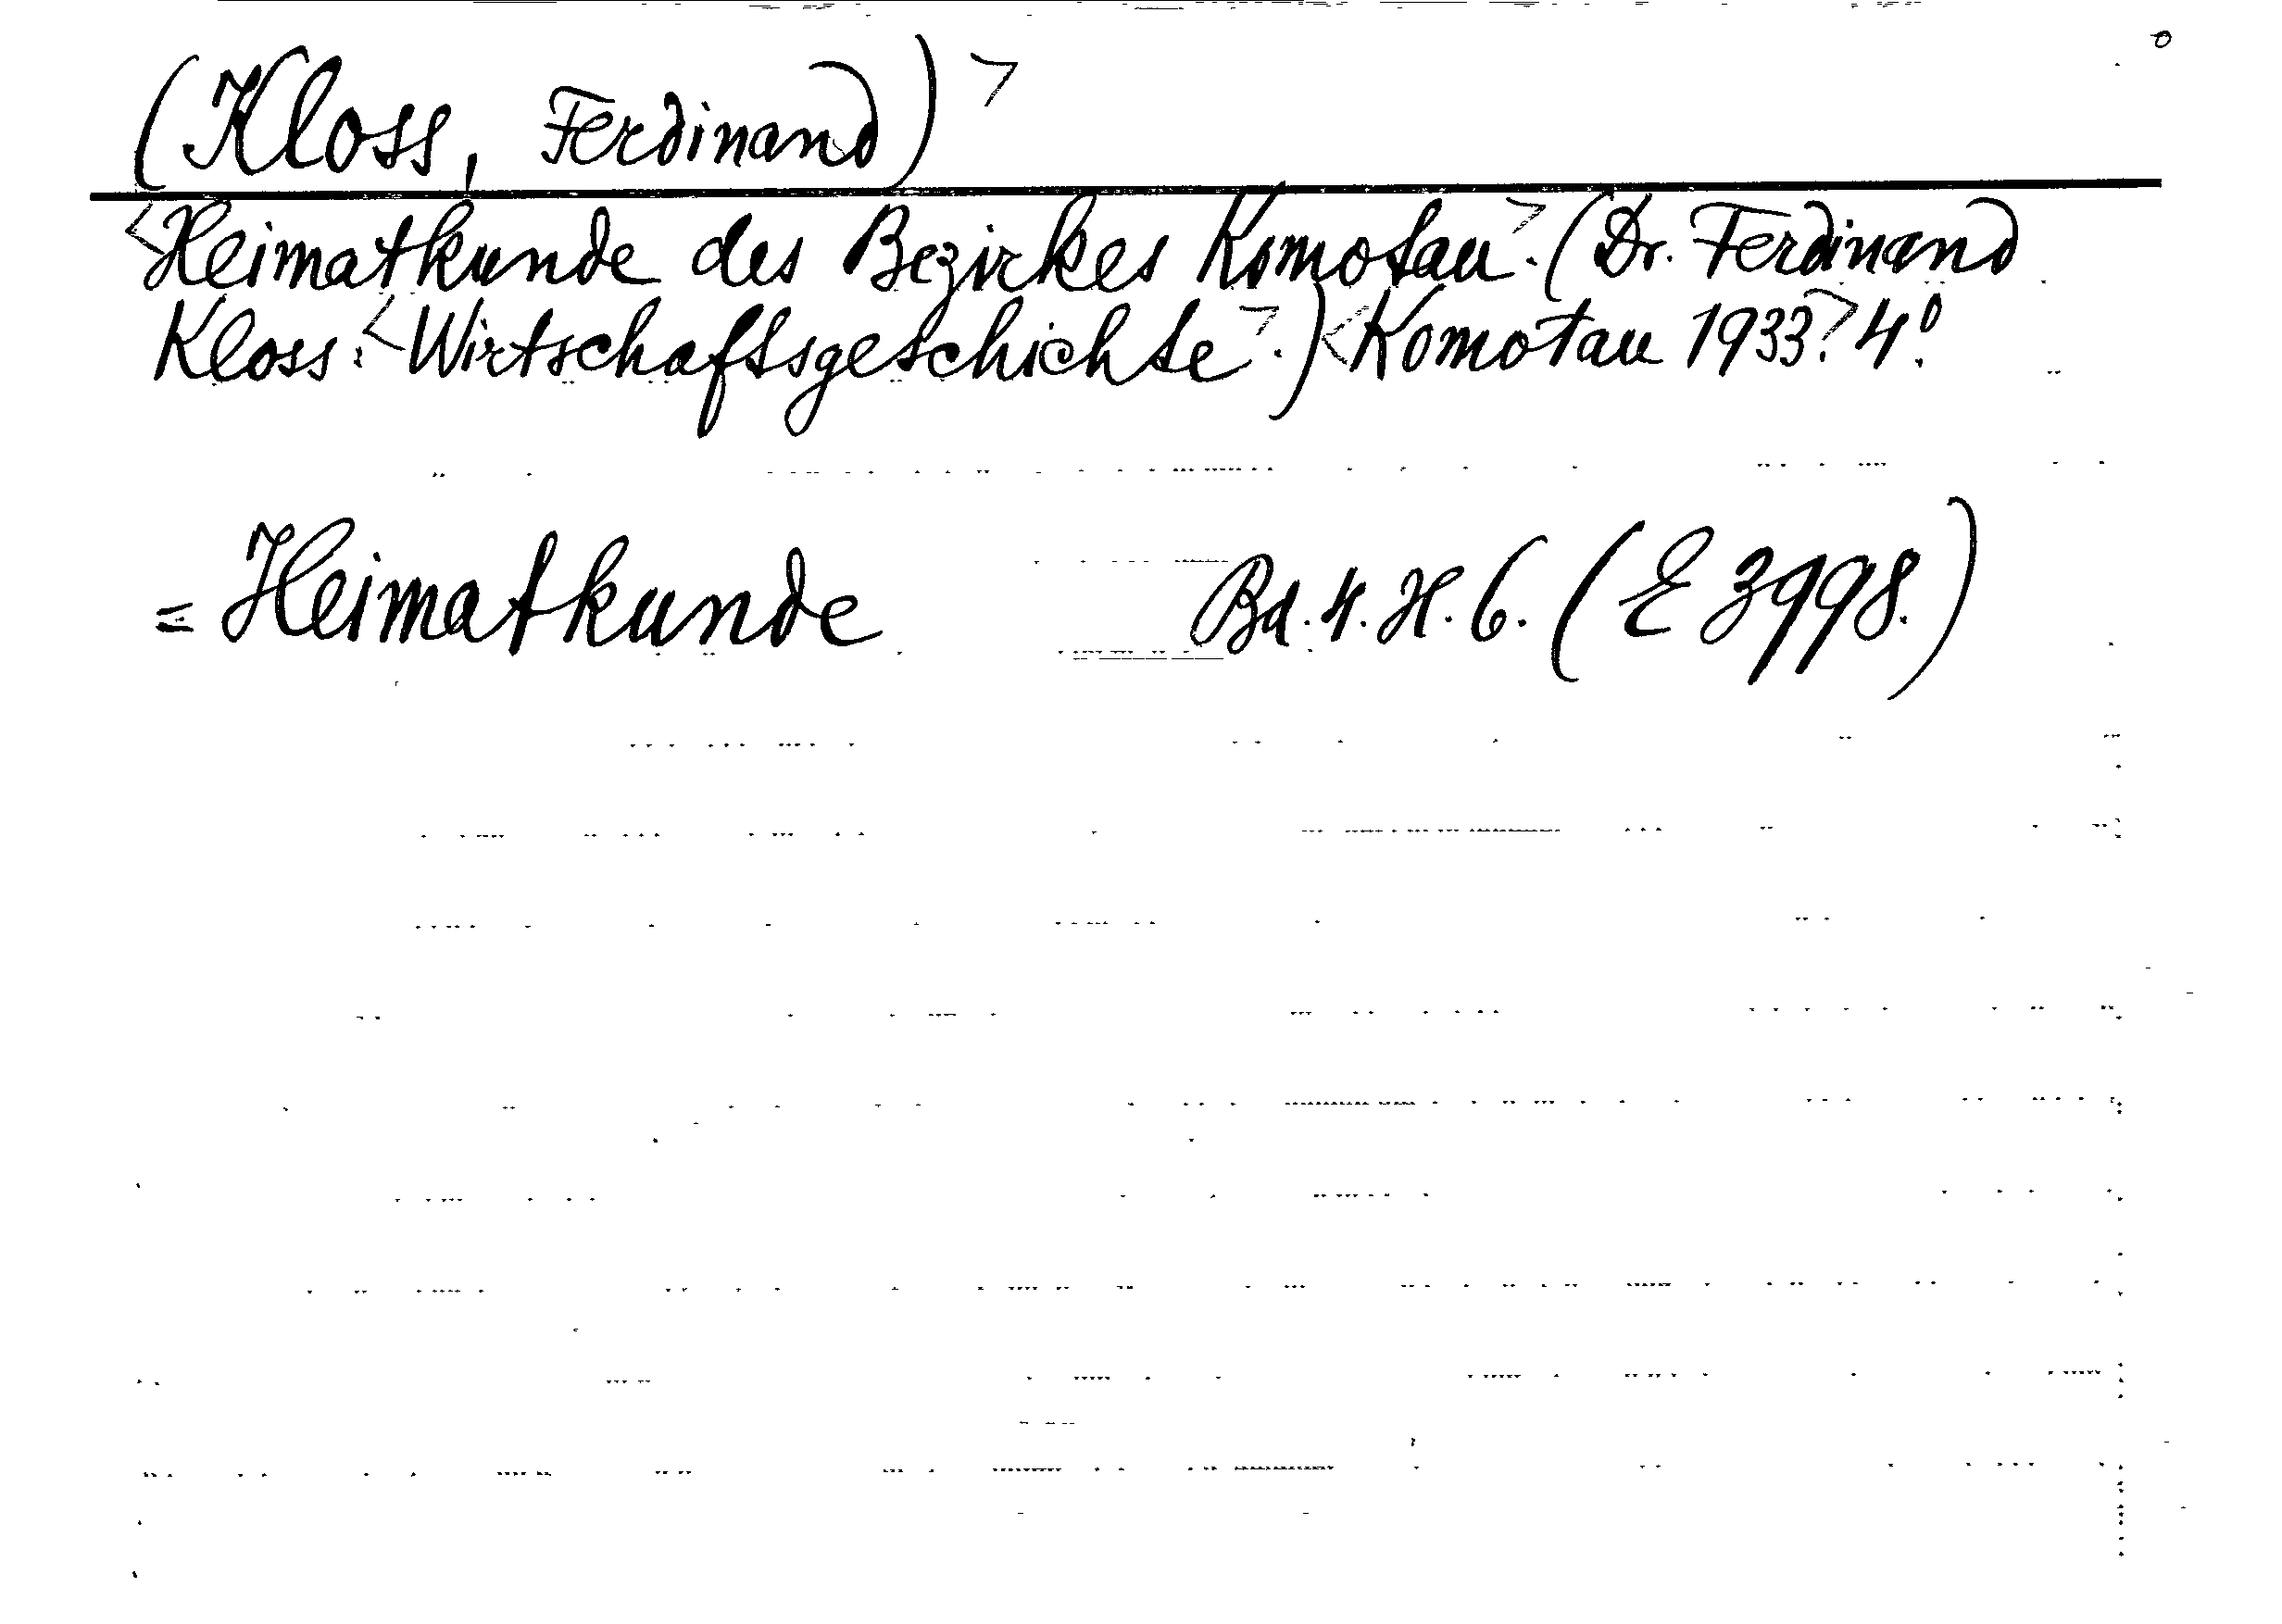 (Kloss, Ferdinand)>
<Heimatkunde des Bezirkes Komotau>. (Dr. Ferdinand
Kloss: <Wirtschaftsgeschichte>.) <Komotau 1933>. 4°.
= Heimatkunde Bd. 4. H. 6. (E 3998.)